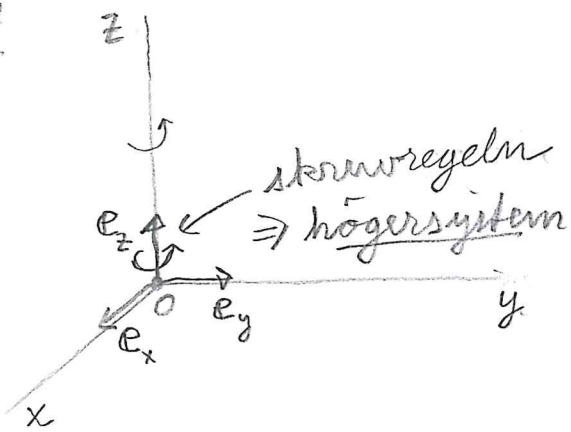 z
skruvregeln
e_z
⇒ högersystem
O
e_y
y
e_x
x